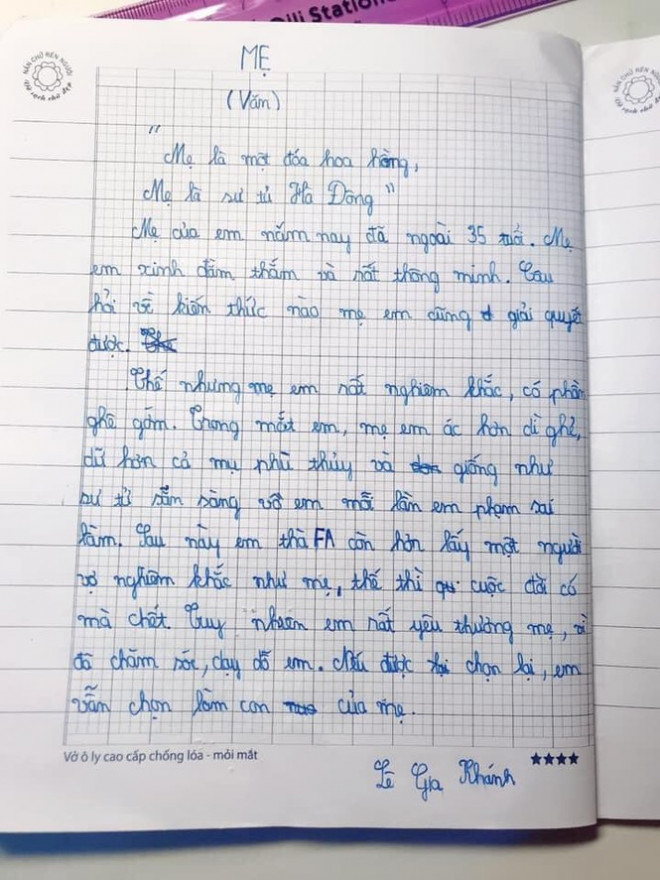 Olli Station
NẮN CHỮ RÈN NGƯỜI
Vở sạch chữ đẹp
MẸ
(Văn)
"
Mẹ là một đóa hoa hồng,
Mẹ là sư tử Hà Đông"
Mẹ của em năm nay đã ngoài 35 tuổi. Mẹ
em xinh đằm thắm và rất thông minh. Câu
hỏi về kiến thức nào mẹ em cũng giải quyết
được.
Thế nhưng mẹ em rất nghiêm khắc, có phần
ghê gớm. Trong mắt em, mẹ em ác hơn dì ghẻ,
dữ hơn cả mụ phù thủy và giống như
sư tử sẵn sàng vồ em mỗi lần em phạm sai
lầm. Sau này em thà FA còn hơn lấy một người
vợ nghiêm khắc như mẹ, thế thì cuộc đời có
mà chết. Tuy nhiên em rất yêu thương mẹ, vì
đã chăm sóc, dạy dỗ em. Nếu được chọn lại, em
vẫn chọn làm con của mẹ.
Vở ô ly cao cấp chống lóa - mỏi mắt
★★★★
Lê Gia Khánh